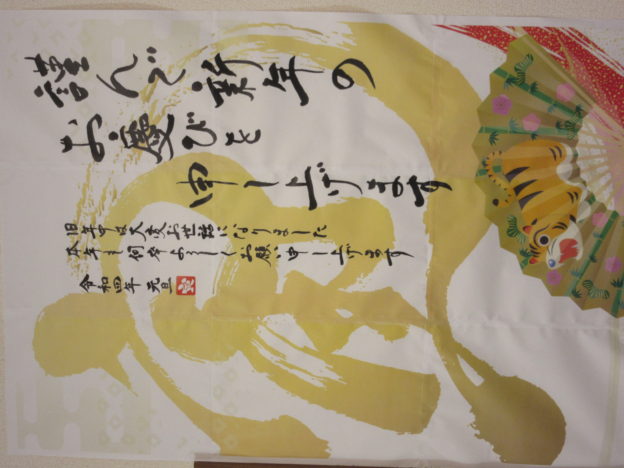 謹んで新年の
お慶びを
申し上げます
旧年中は大変お世話になりました
本年も何卒よろしくお願い申し上げます
令和四年 元旦